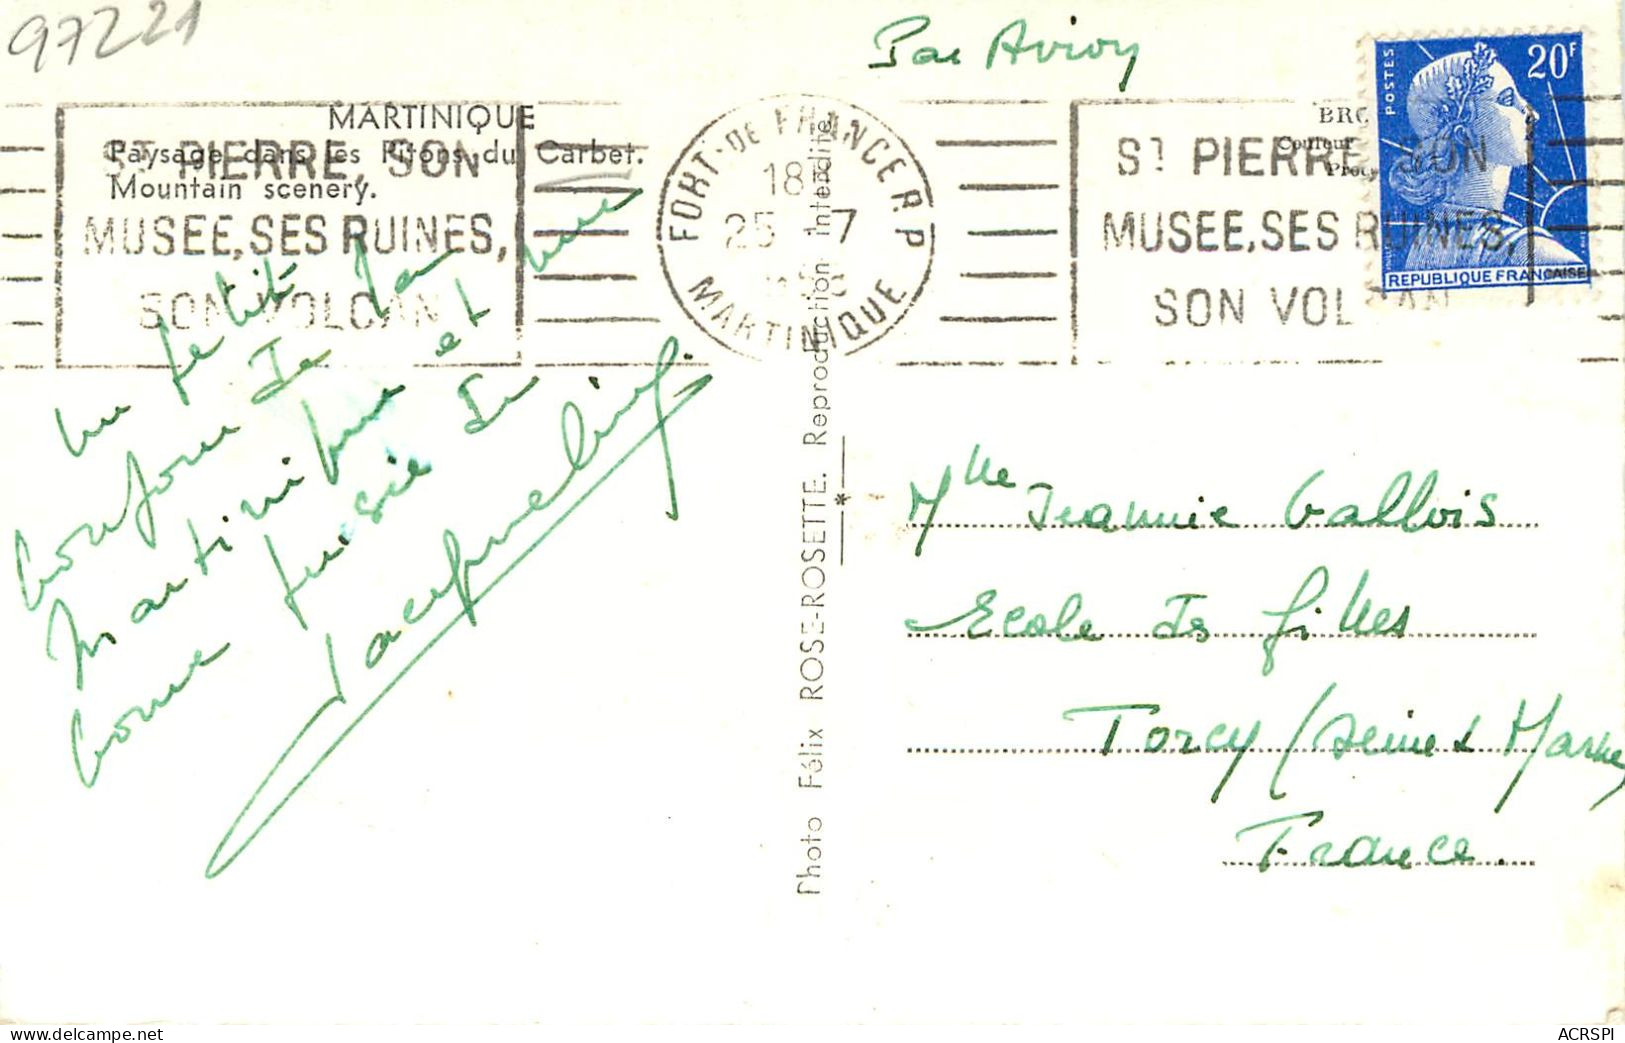 97221
Par Avion
MARTINIQUE
Paysage dans les Pitons du Carbet.
Mountain scenery.
ST PIERRE, SON
MUSEE, SES RUINES,
SON VOLCAN
FORT-DE FRANCE R.P
18H
25 7
MARTINIQUE
ST PIERRE, SON
MUSEE, SES RUINES,
SON VOLCAN
BRO
Couleur
POSTES
20F
REPUBLIQUE FRANÇAISE
Un petit
bonjour de la
Martinique et une
bonne
Jacqueline
Photo Félix ROSE-ROSETTE. Reproduction Interdite.
Mlle Jeannie Gallois
Ecole de filles
Torcy (Seine & Marne)
France.
ACRSPI